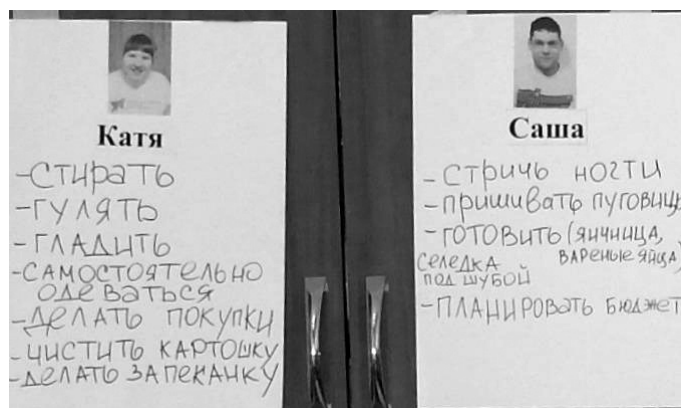 Катя
-СТИРАТЬ
-ГУЛЯТЬ
-ГЛАДИТЬ
-САМОСТОЯТЕЛЬНО
ОДЕВАТЬСЯ
-ДЕЛАТЬ ПОКУПКИ
-ЧИСТИТЬ КАРТОШКУ
-ДЕЛАТЬ ЗАПЕКАНКУ
Саша
-СТРИЧЬ НОГТИ
-ПРИШИВАТЬ ПУГОВИЦЫ
-ГОТОВИТЬ (ЯИЧНИЦА,
СЕЛЕДКА ВАРЕНЫЕ ЯЙЦА,
ПОД ШУБОЙ
-ПЛАНИРОВАТЬ БЮДЖЕТ